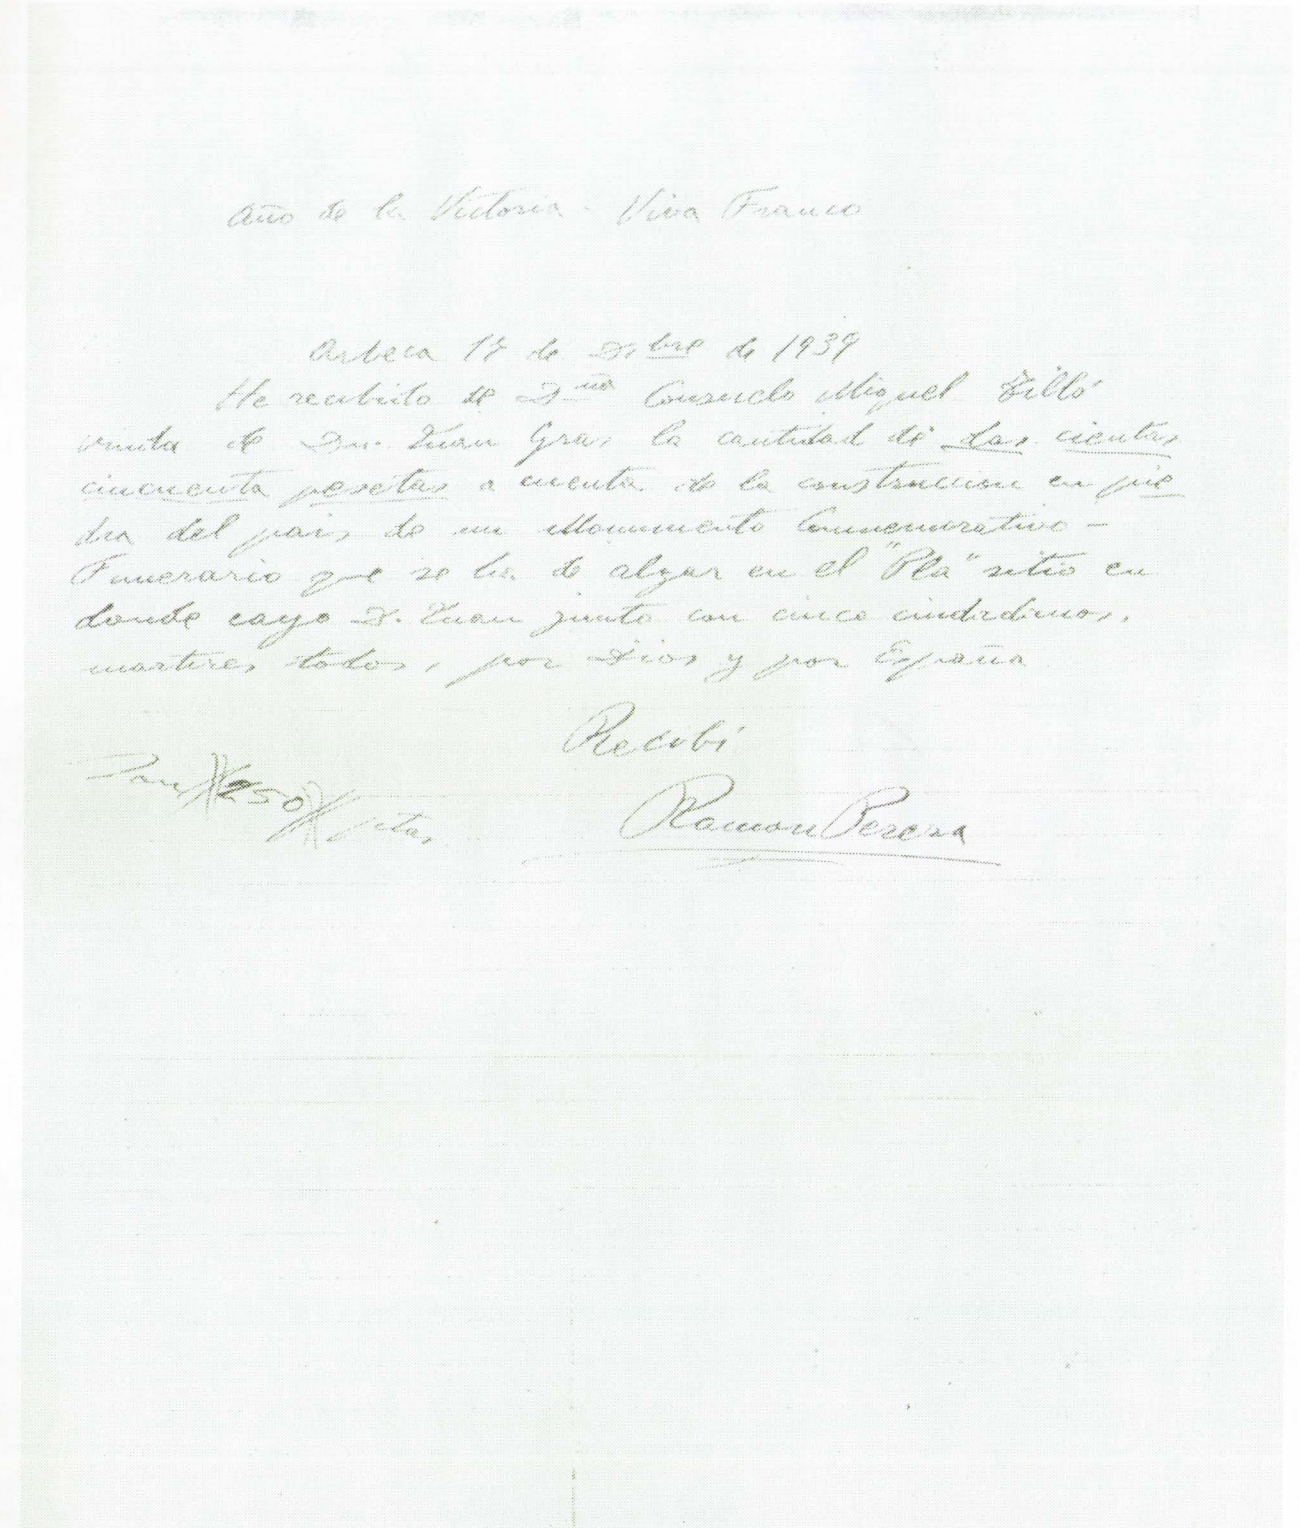 Año de la Victoria - Viva Franco
Arbeca 17 de Dbre de 1939
He recibido de Dña Consuelo Miquel Tilló
viuda de Dn. Juan Gras la cantidad de dos cientas
cincuenta pesetas a cuenta de la construccion en pie
dra del pais de un Monumento Conmemorativo -
Funerario que se ha de alzar en el "Pla" sitio en
donde cayo D. Juan junto con cinco ciudadanos,
martires todos, por Dios y por España
Recibí
Son 250 ptas
Ramon Perera